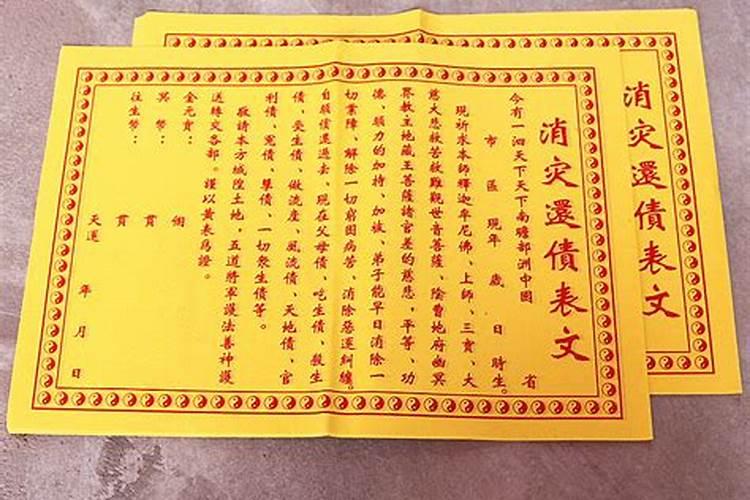 消灾還債表文
今有一泗天下天下南贍部洲中國 省
市 區 現年 歲 日 時生。
現祈求本師釋迦牟尼佛、上師、三寶、大
慈大悲救苦救難觀世音菩薩、陰曹地府幽冥
界教主地藏王菩薩諸官差的慈悲，平等、功
德、願力的加持、加被、弟子能早日消除一
切業障、解除一切窮困病苦、消除惡運糾纏。
自願償還過去、現在父母債、吃生債、殺生
債、受生債、做流產、風流債、天地債、官
利債、冤債、孽債、一切衆生債等。
敬請本方城隍土地，五道將軍護法善神護
送轉交各部。謹以黃表爲證。
金元寶： 個
冥 幣： 貫
往生幣： 貫
天運 年 月 日
消灾還債表文